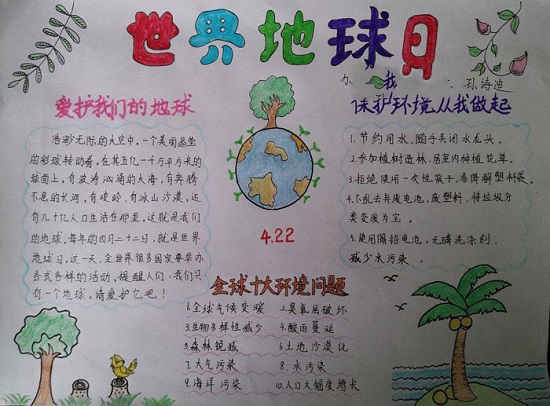 世界地球日
爱护我们的地球
浩渺无际的太空中，一个美丽晶莹
的彩球转动着，在其五亿一千万平方千米的
球面上，有波涛汹涌的大海，有奔腾
不息的长河，有峻岭，有冰山沙漠，还
有几十亿人口生活在那里，这就是我们
的地球。每年的四月二十二日，就是世界
地球日，这一天，全世界很多国家要举办
各式各样的活动，提醒人们：我们只
有一个地球，请爱护它吧！
4.22
保护环境从我做起
1.节约用水，随手关闭水龙头。
2.参加植树造林，居室内种植花草。
3.拒绝使用一次性筷子，
4.不乱丢弃废电池，废塑料，将垃圾分
类变废为宝。
5.使用无磷洗涤剂，
减少水污染。
全球十大环境问题
1.全球气候变暖
2.臭氧层破坏
3.生物多样性减少
4.酸雨蔓延
5.森林锐减
6.土地沙漠化
7.大气污染
8.水污染
9.海洋污染
10.人口大幅度增长